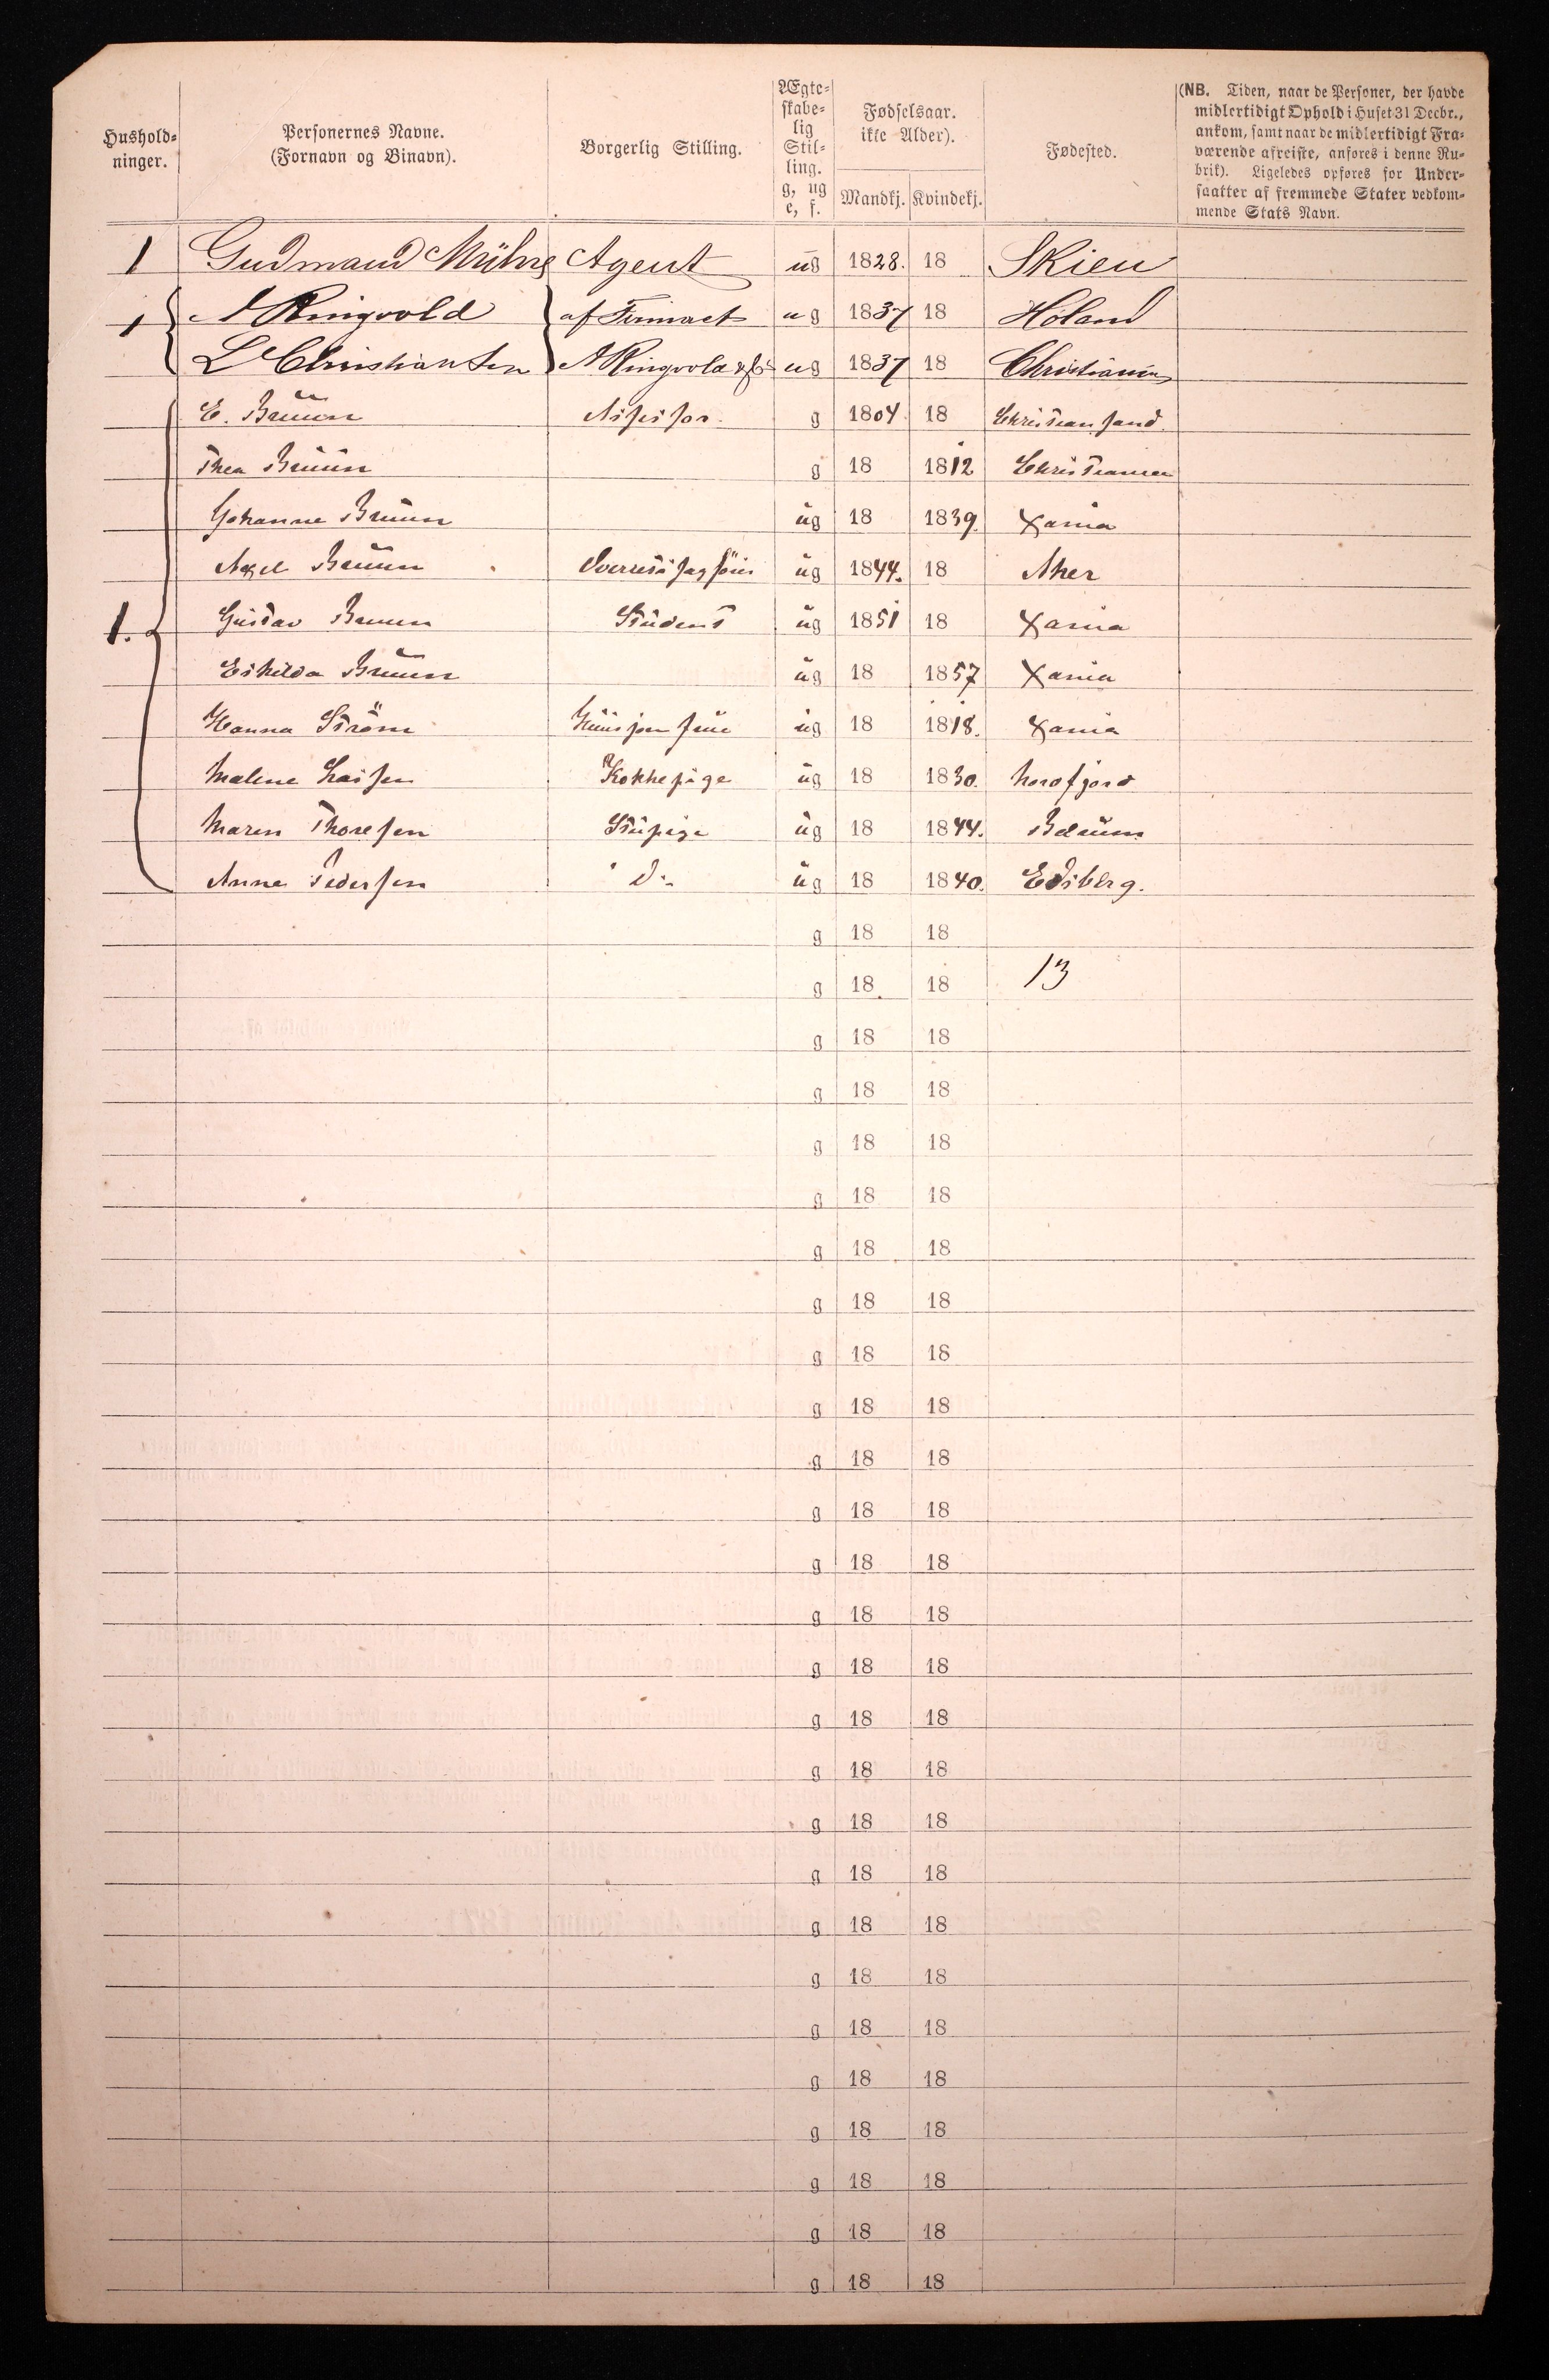 Hushold-
ninger.
Personernes Navne.
(Fornavn og Binavn).
Borgerlig Stilling.
Ægte-
skabe-
lig
Stil-
ling.
g, ug
e, f.
Fødselsaar.
ikke Alder).
Mandkj. Kvindekj.
Fødested.
(NB. Tiden, naar de Personer, der havde
midlertidigt Ophold i Huset 31 Decbr.,
ankom, samt naar de midlertidigt Fra-
værende afreiste, anføres i denne Ru-
brik). Ligeledes opføres for Under-
saatter af fremmede Stater vedkom-
mende Stats Navn.
1 Gudmand Mühre Agent ug 1828. 18 Skien
1 A Ringvold af Firmaet ug 1837 18 Höland
L Christiansen A Ringvold & Co ug 1837 18 Christiania
E. Bruun Assessor. g 1804 18 Christiansand.
Thea Bruun g 18 1812 Christiania
Johanne Bruun ug 18 1839. Xania
Axel Bruun Overretssagfører ug 1844. 18 Aker
1. Gustav Bruun Student ug 1851 18 Xania
Eskilda Bruun ug 18 1857 Xania
Hanna Ström Huusjomfrue ug 18 1818. Xania
Malene Larsen Kokkepige ug 18 1830. Nordfjord
Maren Thoresen Stupige ug 18 1844. Bærum
Anne Pedersen Do ug 18 1840. Edsberg.
g 18 18
g 18 18 13
g 18 18
g 18 18
g 18 18
g 18 18
g 18 18
g 18 18
g 18 18
g 18 18
g 18 18
g 18 18
g 18 18
g 18 18
g 18 18
g 18 18
g 18 18
g 18 18
g 18 18
g 18 18
g 18 18
g 18 18
g 18 18
g 18 18
g 18 18
g 18 18
g 18 18